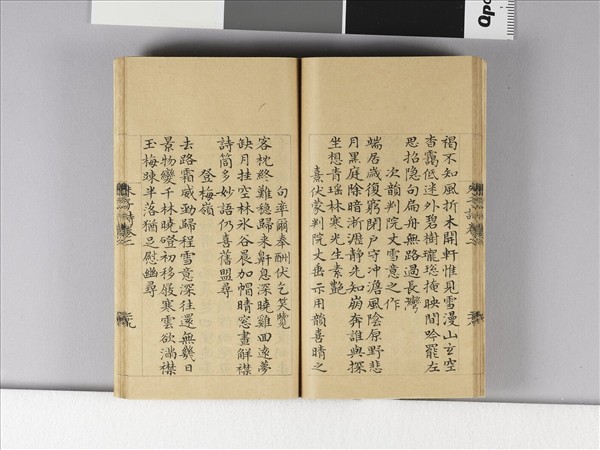 褐不知風折木開軒惟見雪漫山玄空
杳靄低迷外碧樹瓏璁掩映間吟罷左
思招隱句扁舟無路過長灣
次韻判院丈雪意之作
端居歲復窮閉戶守沖澹風陰原野悲
月黑庭除暗淅瀝靜先知崩奔誰與探
坐想青瑤林寒光生素艷
熹伏蒙判院丈垂示用韻喜晴之
句率爾奉酬伏乞笑覽
客枕終難穩歸來鼾息深曉雞回遠夢
缺月挂空林氷谷晨加帽晴窓晝解襟
詩筒多妙語仍喜舊盟尋
登梅嶺
去路霜威勁歸程雪意深往還無幾日
景物變千林曉磴初移屐寒雲欲滿襟
玉梅疎半落猶足慰幽尋
Qp